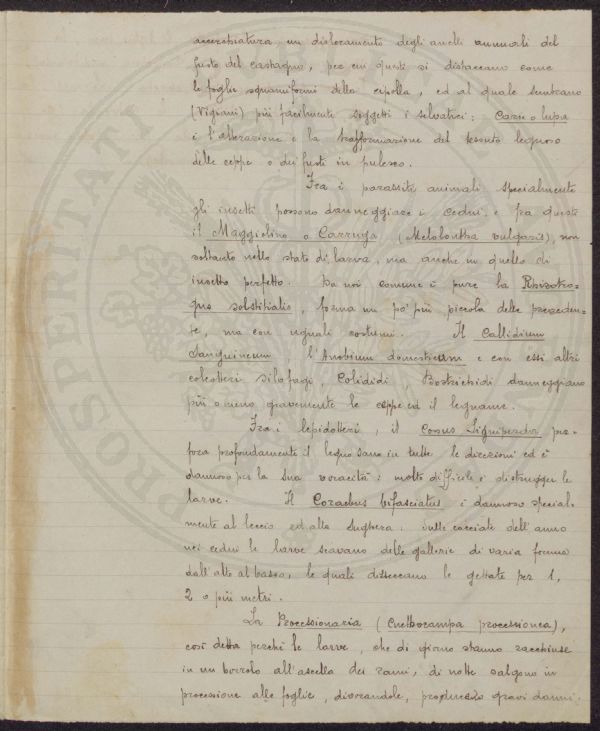 accerchiatura, un dislocamento degli anelli annuali del
fusto del castagno, per cui questi si distaccano come
le foglie squamiformi della cipolla, ed al quale sembrano
(Vigiani) più facilmente soggetti i selvatici; Carie o lupa
è l'alterazione e la trasformazione del tessuto legnoso
delle ceppe o dei fusti in pulesco.
Fra i parassiti animali specialmente
gli insetti possono danneggiare i cedui, e fra questi
il Maggiolino o Carruga (Melolontha vulgaris), non
soltanto nello stato di larva, ma anche in quello di
insetto perfetto. Da noi comune è pure la Rhizotro-
gus solstitialis, forma un po' più piccola della preceden-
te, ma con uguali costumi. Il Callidium
Sanguineum l'Anobium domesticum e con essi altri
coleotteri silofagi, Colididi, Bostrichidi danneggiano
più o meno gravemente le ceppe ed il legname.
Fra i lepidotteri, il Cossus Ligniperda, per-
fora profondamente il legno sano in tutte le direzioni ed è
dannoso per la sua voracità: molto difficile è distruggere le
larve. Il Coraebus bifasciatus è dannoso special-
mente al leccio ed alla Sughera. Sulle cacciate dell'anno
nei cedui le larve scavano delle gallerie di varia forma
dall'alto al basso, le quali disseccano le gettate per 1,
2 o più metri.
La Processionaria (Cnethocampa processionea),
così detta perchè le larve, che di giorno stanno racchiuse
in un bozzolo all'ascella dei rami, di notte salgono in
processione alle foglie, divorandole, producendo gravi danni.
PROSPERITATI